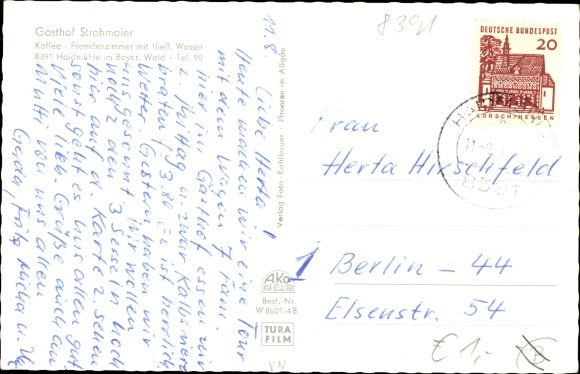 Gasthof Strohmaier
Kaffee - Fremdenzimmer mit fließ. Wasser
8391 Haidmühle im Bayer. Wald - Tel. 90
8391
DEUTSCHE BUNDESPOST
20
LORSCH/HESSEN
11.8. Liebe Herta!
Heute machen wir eine Tour
mit dem Wagen
hier im Gasthof essen wir
z. Mittag u. zwar Kalbsniere
braten 3.80 Es ist herrlich
Wetter. Gestern haben wir
uns gesonnt. Wir wollen
noch z. den 3 Sesseln hoch
hier auf d. Karte z. sehen
sonst geht es uns allen gut.
Viele liebe Grüße auch an
Mutti von uns allen
Gerda, Fritz, Micha u.
Verlag Foto-Kohlbauer · Pfronten im Allgäu
Frau
Herta Hirschfeld
1 Berlin - 44
Elsenstr. 54
8391
Ako
Best.-Nr.
W 8601-4B
TURA
FILM
€ 1,-